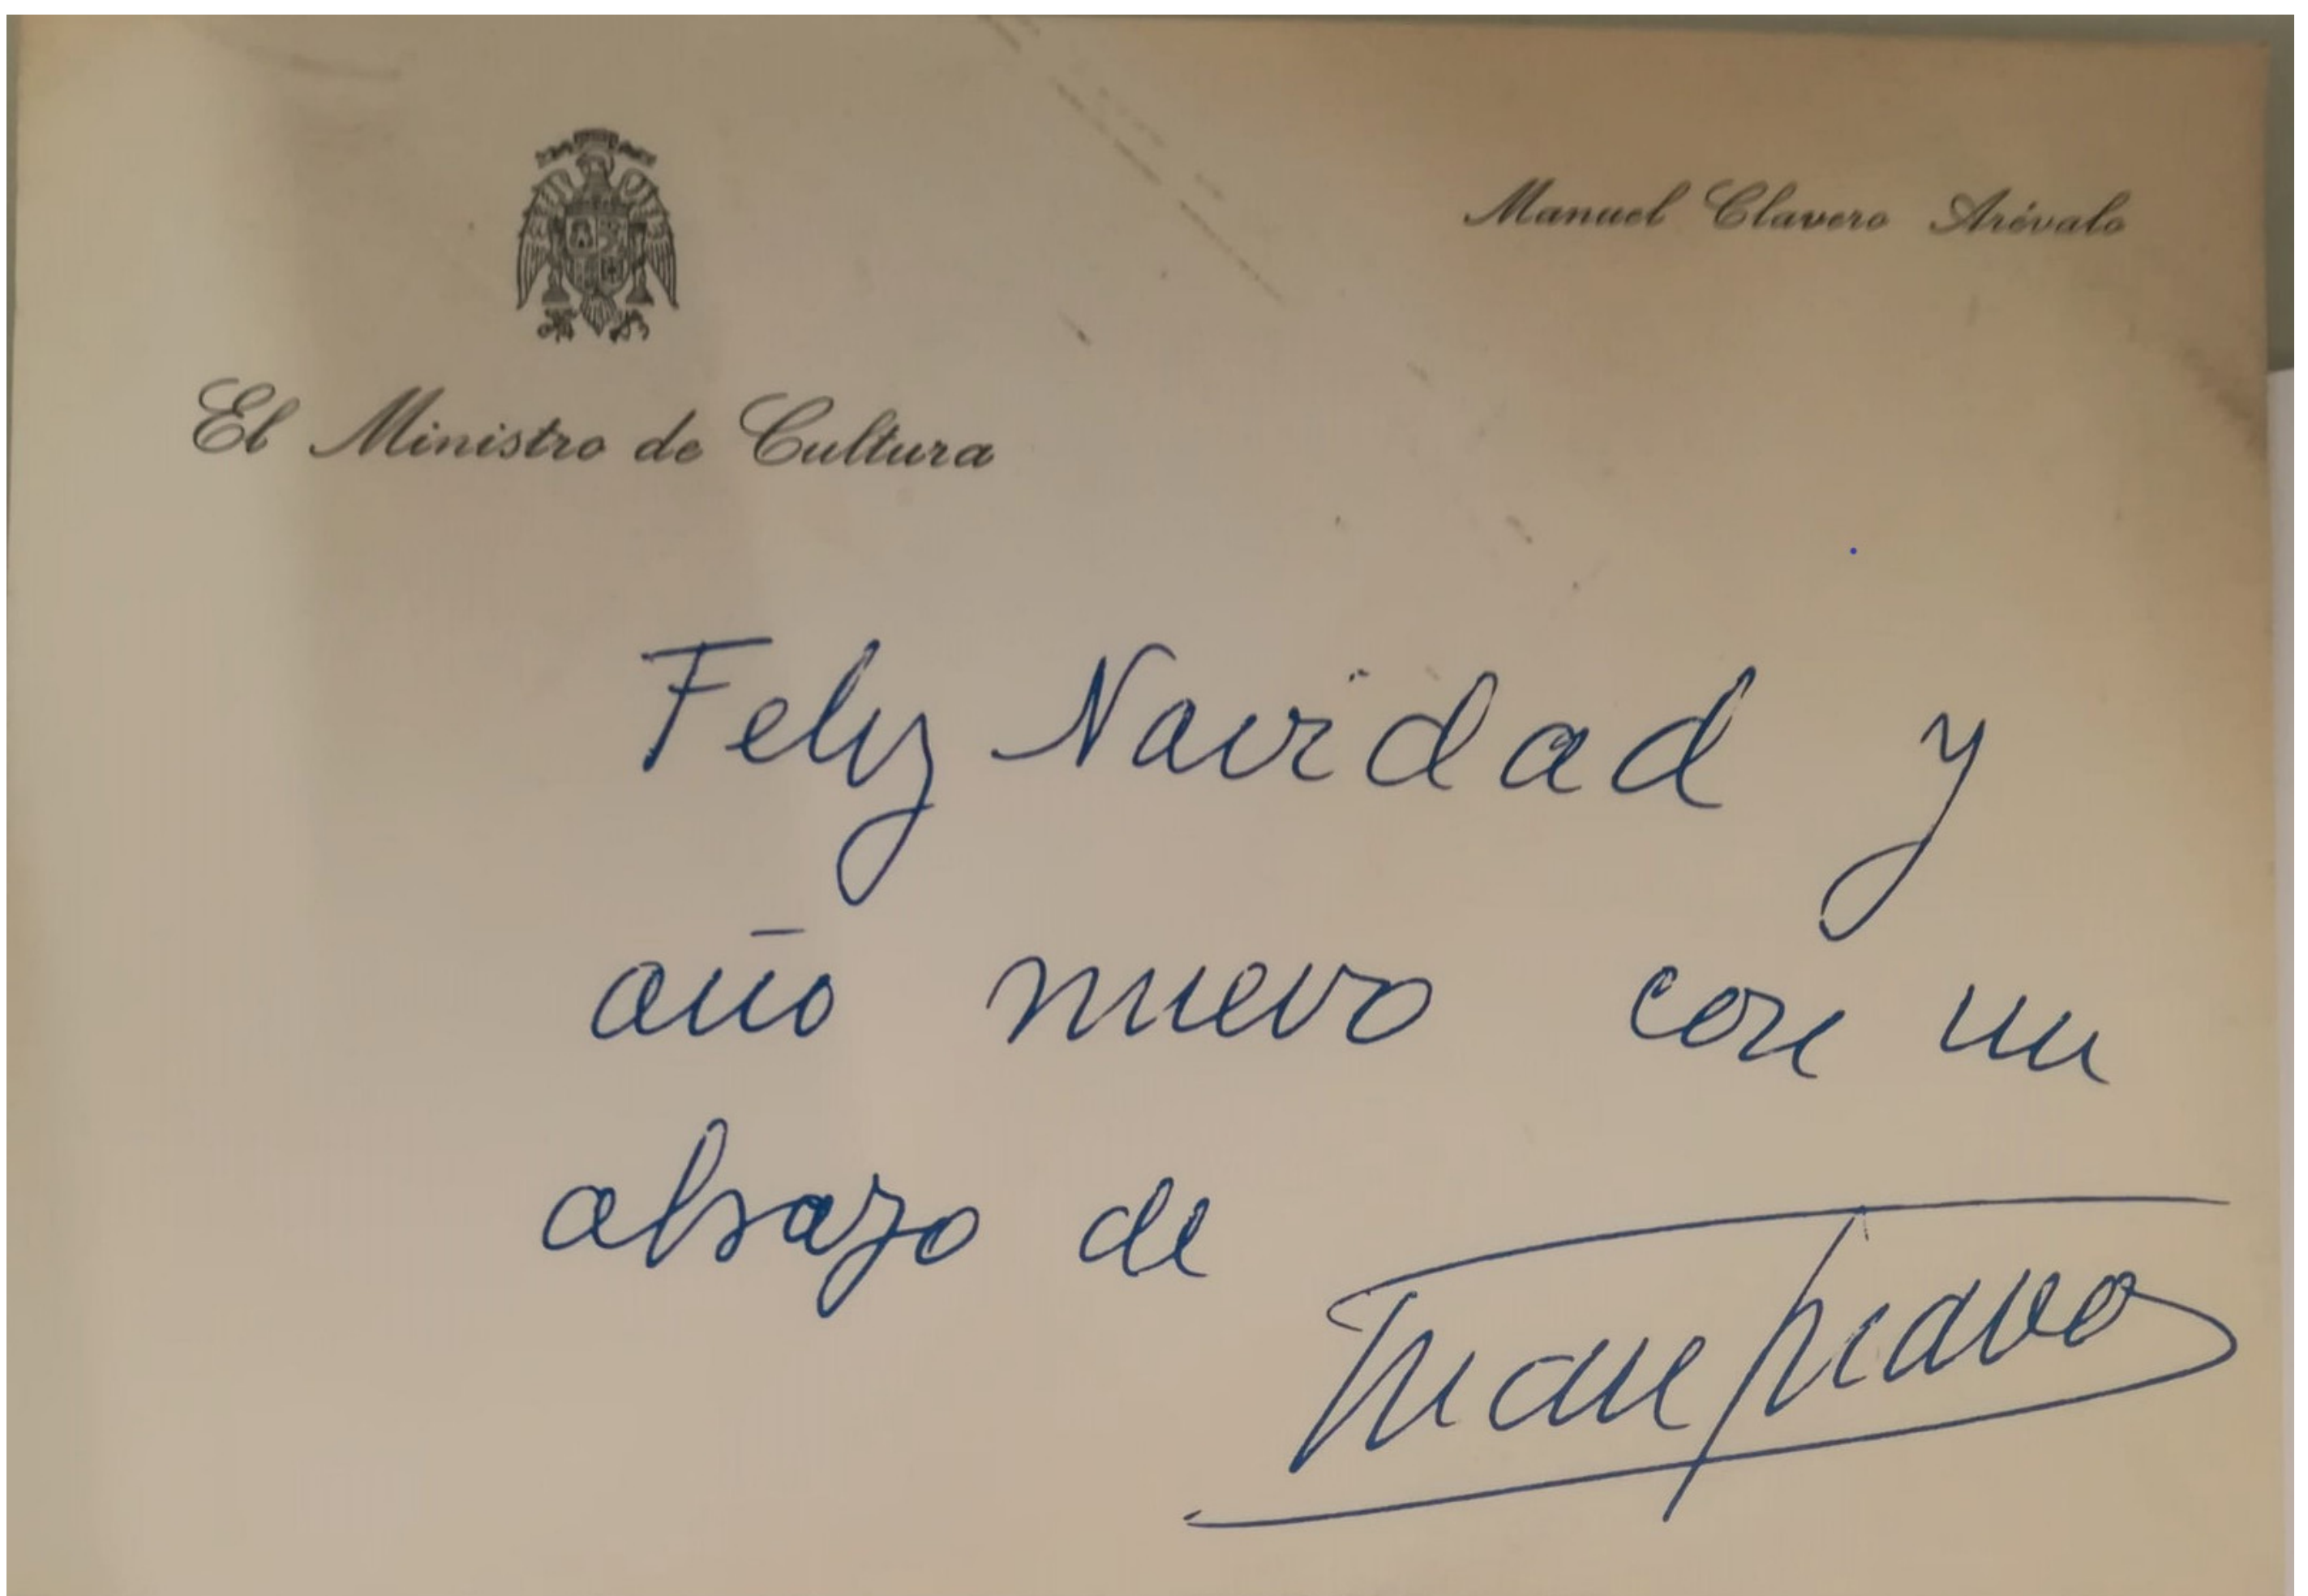 Manuel Clavero Arévalo
El Ministro de Cultura
Feliz Navidad y
año nuevo con un
abrazo de